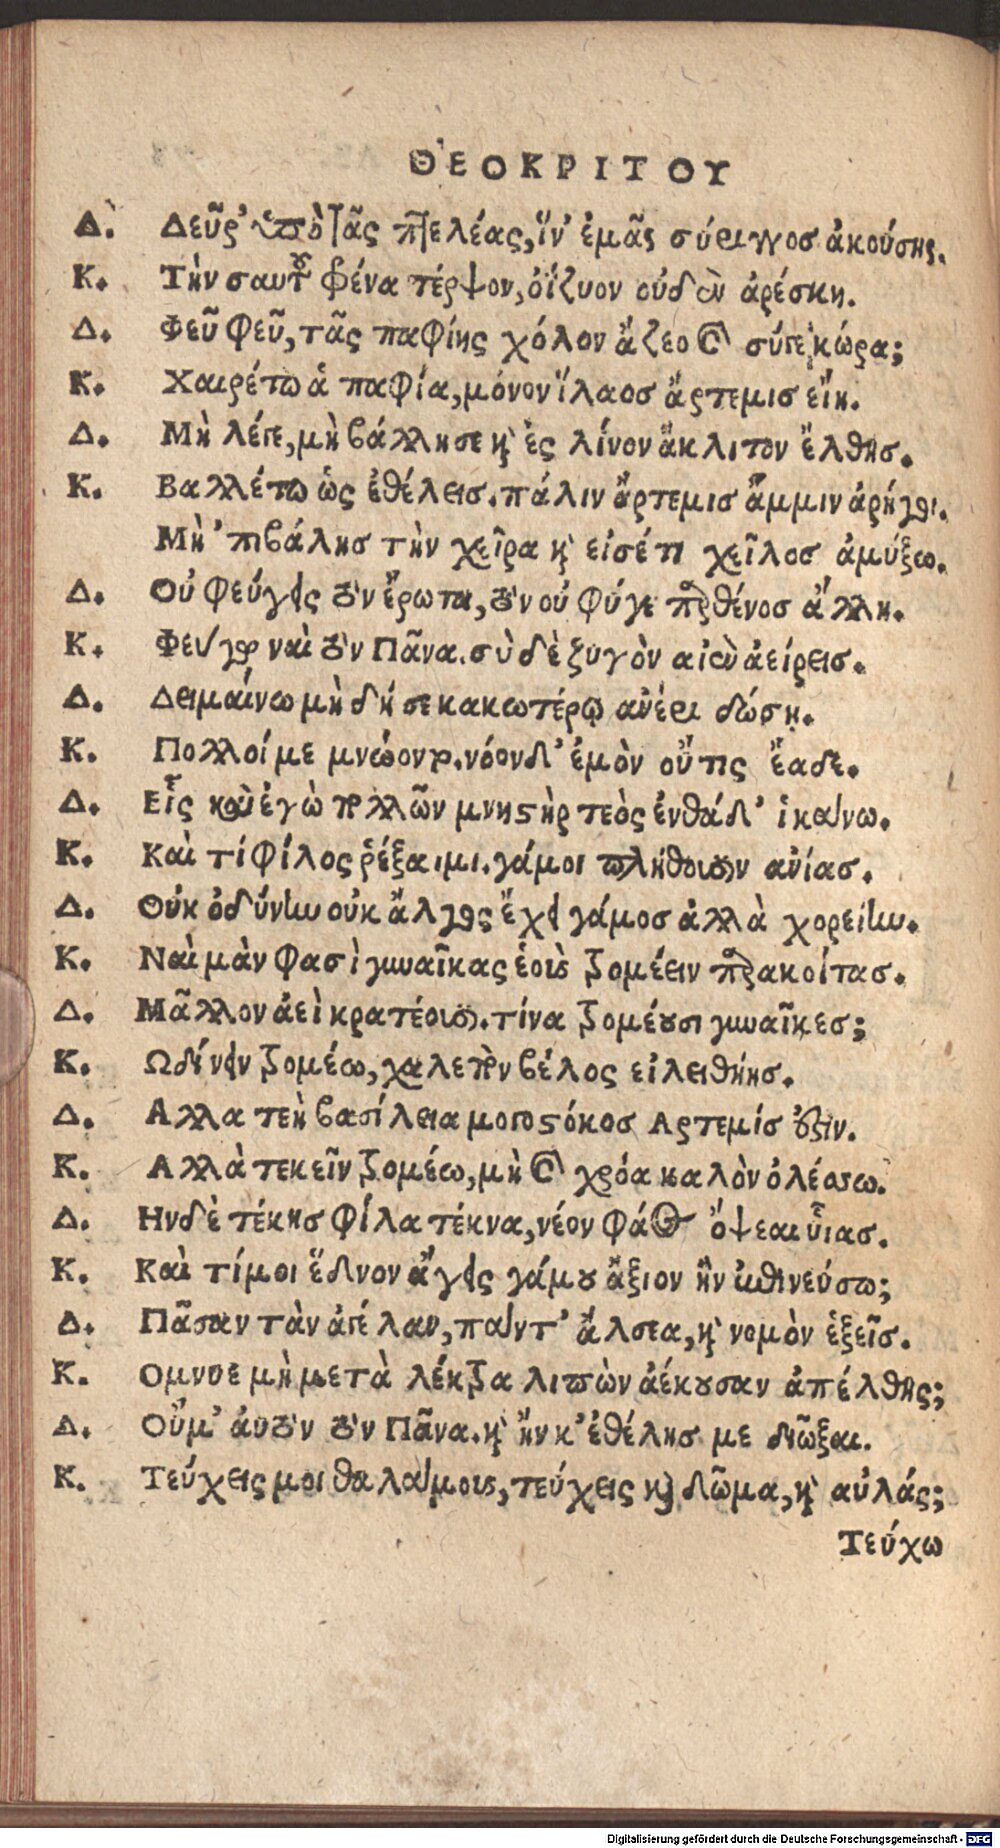 ΘΕΟΚΡΙΤΟΥ
Δ. Δεῦρ' ὑπὸ τὰς πτελέας, ἵν' ἐμᾶς σύριγγος ἀκούσης.
Κ. Τὴν σαυτοῦ φρένα τέρψον, ὀΐζυον οὐδὲν ἀρέσκη.
Δ. Φεῦ φεῦ, τᾶς παφίης χόλον ἅζεο καὶ σύγε κώρα;
Κ. Χαιρέτω ἁ παφία, μόνον ἵλαος ἄρτεμις εἴη.
Δ. Μὴ λέγε, μὴ βάλλησε καὶ ἐς λίνον ἄκλιτον ἔλθης.
Κ. Βαλλέτω ὡς ἐθέλεις. πάλιν ἄρτεμις ἄμμιν ἀρήγει.
Μὴ 'πιβάλης τὴν χεῖρα καὶ εἰσέτι χεῖλος ἀμύξω.
Δ. Οὐ φεύγεις τὸν ἔρωτα, τὸν οὐ φύγε παρθένος ἄλλη.
Κ. Φεύγω ναὶ τὸν Πᾶνα. σὺ δὲ ζυγὸν αἰὲν ἀείρεις.
Δ. Δειμαίνω μὴ δή σε κακωτέρῳ ἀνέρι δώση.
Κ. Πολλοί με μνώοντο. νόον δ' ἐμὸν οὔτις ἕαδε.
Δ. Εἷς καὶ ἐγὼ πολλῶν μνηστὴρ τεὸς ἐνθάδ' ἱκαίνω.
Κ. Καὶ τί φίλος ῥέξαιμι. γάμοι πλήθουσιν ἀνίας.
Δ. Οὐκ ὀδύνην οὐκ ἄλγος ἔχει γάμος ἀλλὰ χορείην.
Κ. Ναὶ μὰν φασὶ γυναῖκας ἑοὺς τρομέειν παρακοίτας.
Δ. Μᾶλλον ἀεὶ κρατέουσι. τίνα τρομέουσι γυναῖκες;
Κ. Ωδίνειν τρομέω, χαλεπὸν βέλος εἰλειθήης.
Δ. Αλλα τεὴ βασίλεια μογοστόκος Αρτεμίς ἐστιν.
Κ. Αλλὰ τεκεῖν τρομέω, μὴ καὶ χρόα καλὸν ὀλέσσω.
Δ. Ην δὲ τέκης φίλα τέκνα, νέον φάος ὄψεαι υἷας.
Κ. Καὶ τί μοι ἕδνον ἄγεις γάμου ἄξιον ἢν ἐπινεύσω;
Δ. Πᾶσαν τὰν ἀγέλαν, πάντ' ἄλσεα, καὶ νομὸν ἑξεῖς.
Κ. Ομνυε μὴ μετὰ λέκτρα λιπὼν ἀέκουσαν ἀπέλθης;
Δ. Οὔμ' αὐτὸν τὸν Πᾶνα. καὶ ἤν κ' ἐθέλης με διῶξαι.
Κ. Τεύχεις μοι θαλάμους, τεύχεις καὶ δῶμα, καὶ αὐλάς;
Τεύχω
Digitalisierung gefördert durch die Deutsche Forschungsgemeinschaft - DFG